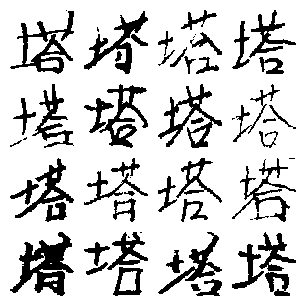 塔塔塔塔
塔塔塔塔
塔塔塔塔
塔塔塔塔